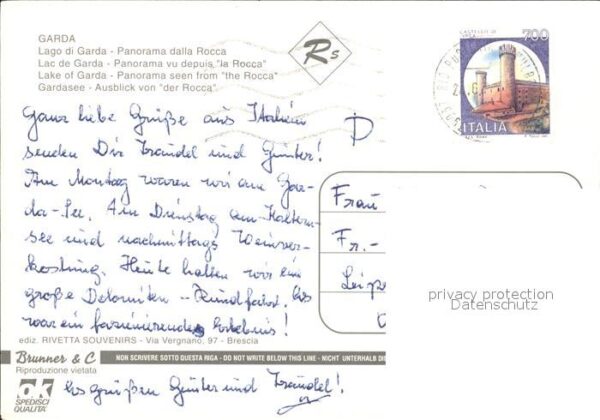 GARDA
Lago di Garda - Panorama dalla Rocca
Lac de Garda - Panorama vu depuis "la Rocca"
Lake of Garda - Panorama seen from "the Rocca"
Gardasee - Ausblick von "der Rocca"
Rs
CASTELLO DI
700
ITALIA
Ganz liebe Grüße aus Italien
senden Dir Traudel und Günter!
Am Montag waren wir am Gar-
da-See. Am Dienstag am Kalterer-
see und nachmittags Weinver-
kostung. Heute hatten wir ein
große Dolomiten-Rundfahrt. Es
war ein faszinierendes Erlebnis!
D
Frau
Fr.-
Leip
privacy protection
Datenschutz
ediz. RIVETTA SOUVENIRS - Via Vergnano, 97 - Brescia
Brunner & C
NON SCRIVERE SOTTO QUESTA RIGA - DO NOT WRITE BELOW THIS LINE - NICHT UNTERHALB DI
Riproduzione vietata
ok
SPEDISCI
QUALITÀ
Es grüßen Günter und Traudel!